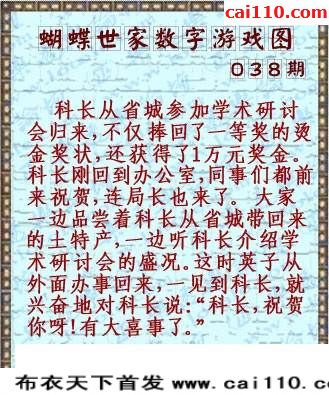 cai110.com
蝴蝶世家数字游戏图
038期
科长从省城参加学术研讨
会归来,不仅捧回了一等奖的烫
金奖状,还获得了1万元奖金。
科长刚回到办公室,同事们都前
来祝贺,连局长也来了。大家
一边品尝着科长从省城带回来
的土特产,一边听科长介绍学
术研讨会的盛况。这时英子从
外面办事回来,一见到科长,就
兴奋地对科长说:“科长,祝贺
你呀!有大喜事了。”
布衣天下首发 www.cai110.c